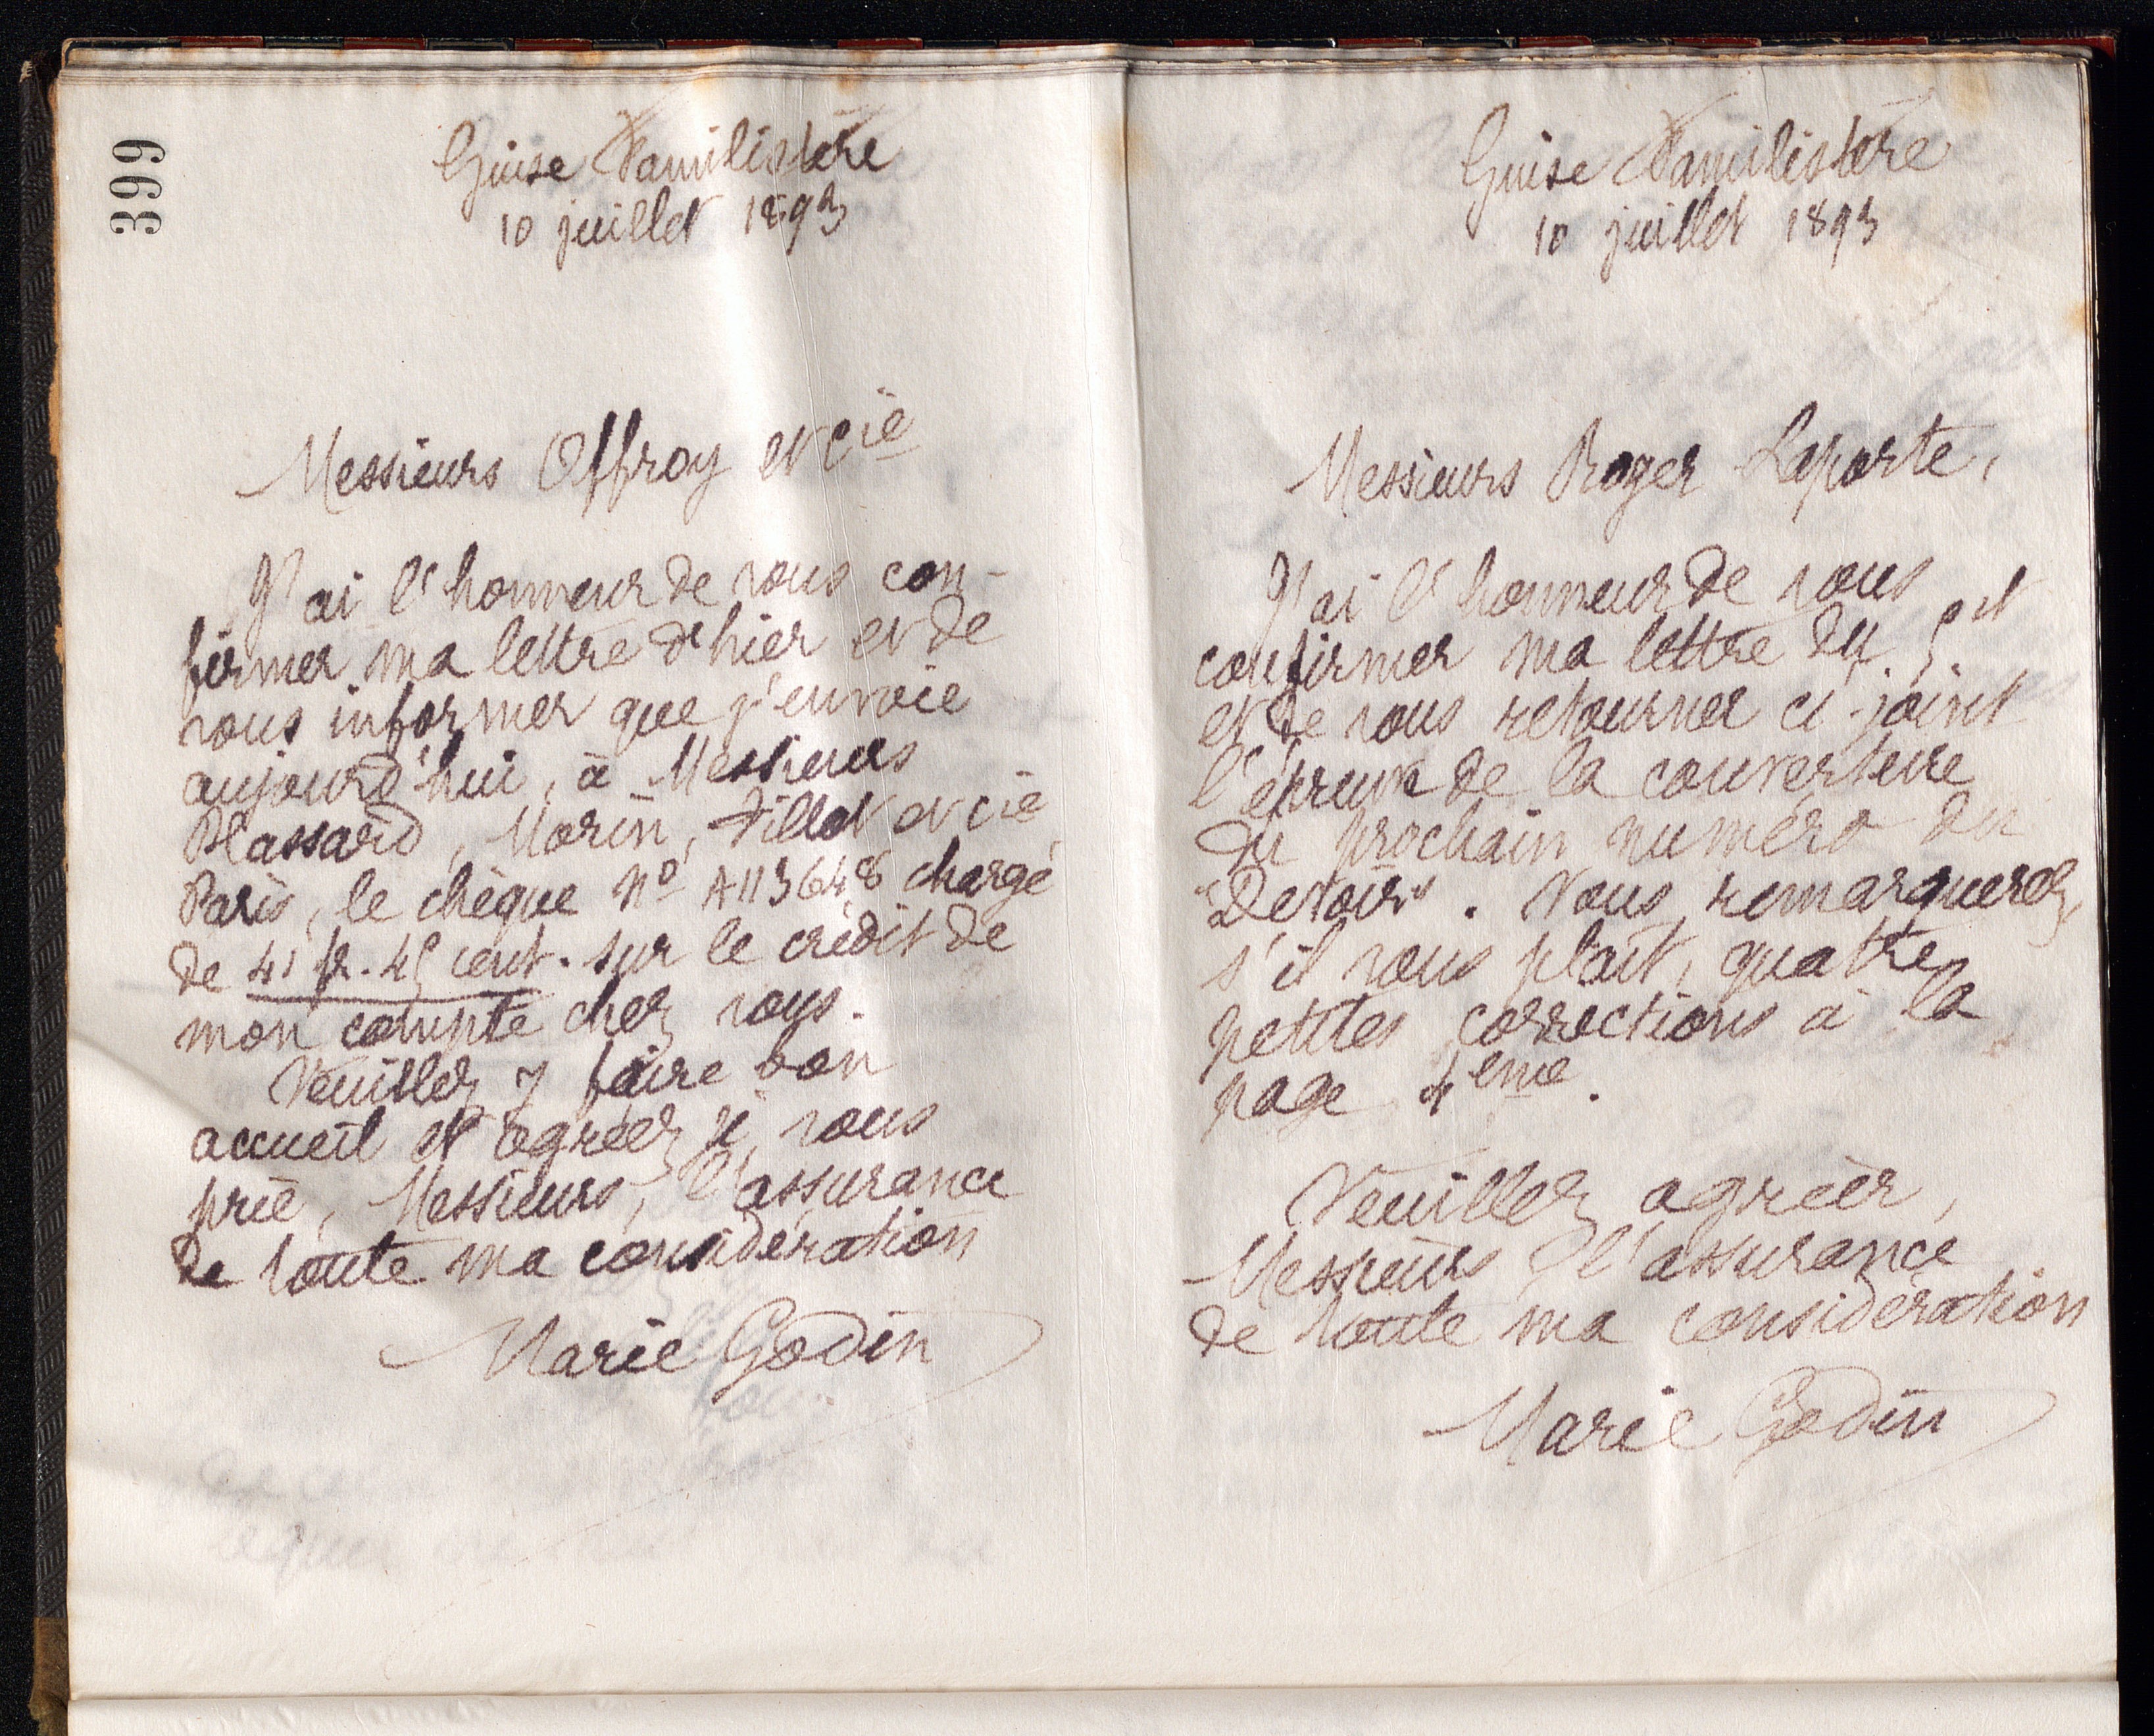 399
Guise Familistère
10 juillet 1893
Messieurs Offroy et cie
J'ai l'honneur de vous con-
firmer ma lettre d'hier et de
vous informer que j'envoie
aujourd'hui, à Messieurs
Plassard, Morin, Fillot et cie
Paris, le chèque no A113648 chargé
de 41 fr. 45 cent. sur le crédit de
mon compte chez vous.
Veuillez y faire bon
accueil et agréez je vous
prie, Messieurs, l'assurance
de toute ma considération
Marie Godin
Guise Familistère
10 juillet 1893
Messieurs Roger Laporte,
J'ai l'honneur de vous
confirmer ma lettre du 5 ct
et de vous retourner ci-joint
l'épreuve de la couverture
du prochain numéro du
"Devoir". Vous remarquerez
s'il vous plaît, quatre
petites corrections à la
page 4ème.
Veuillez agréer,
Messieurs, l'assurance
de toute ma considération
Marie Godin